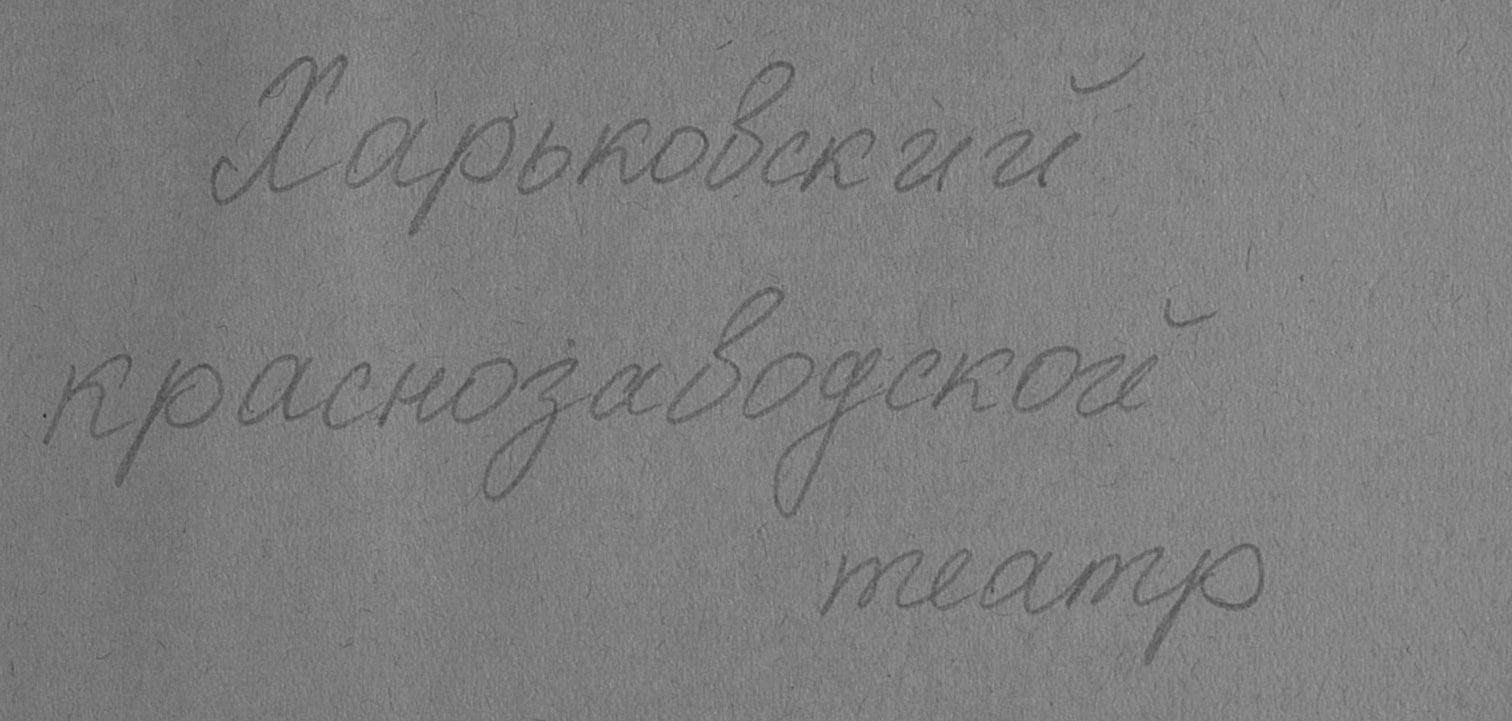 Харьковский
краснозаводской
театр